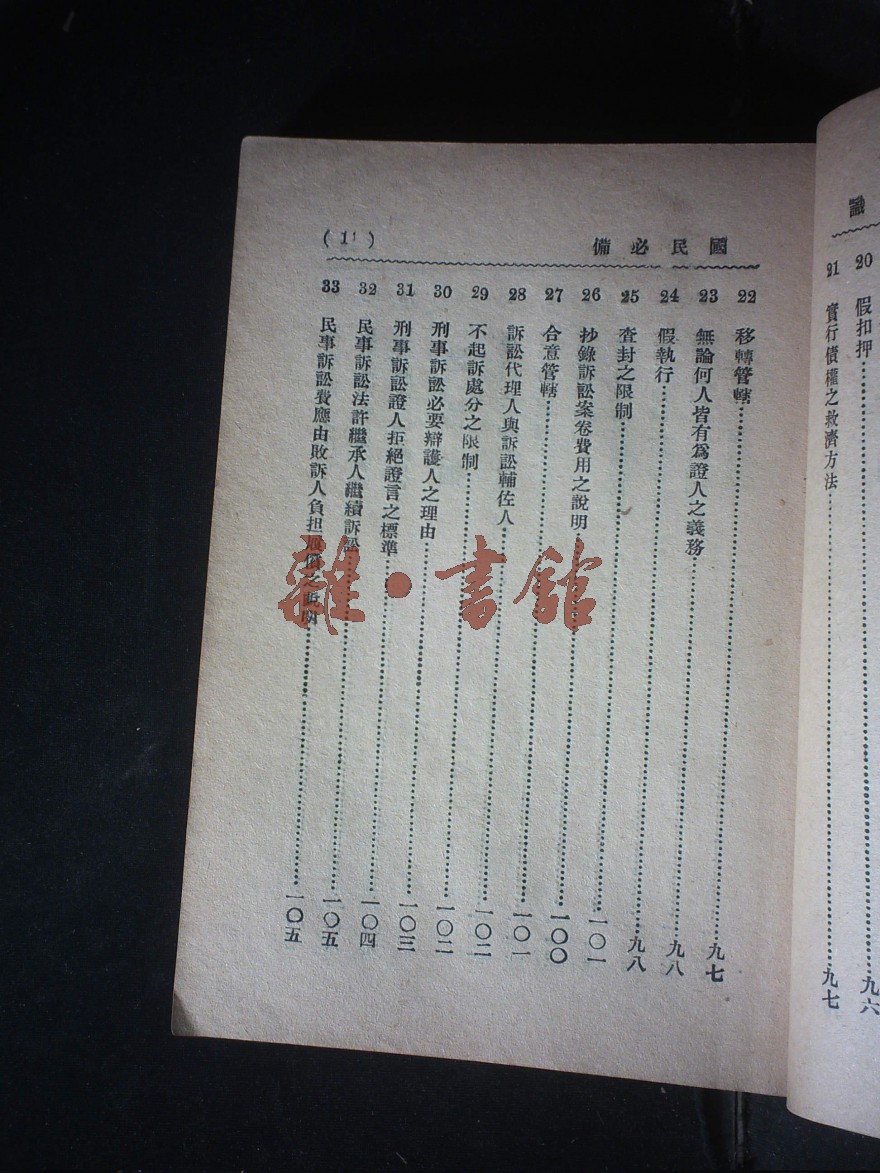 識
20 假扣押……九六
21 實行債權之救濟方法……九七
國民必備 (11)
22 移轉管轄……九七
23 無論何人皆有爲證人之義務……九八
24 假執行……九八
25 查封之限制……一〇一
26 抄錄訴訟案卷費用之說明……一〇〇
27 合意管轄……一〇一
28 訴訟代理人與訴訟輔佐人……一〇二
29 不起訴處分之限制……一〇二
30 刑事訴訟必要辯護人之理由……一〇三
31 刑事訴訟證人拒絕證言之標準……一〇四
32 民事訴訟法許繼承人繼續訴訟……一〇五
33 民事訴訟費應由敗訴人負担……一〇五
雜·書館